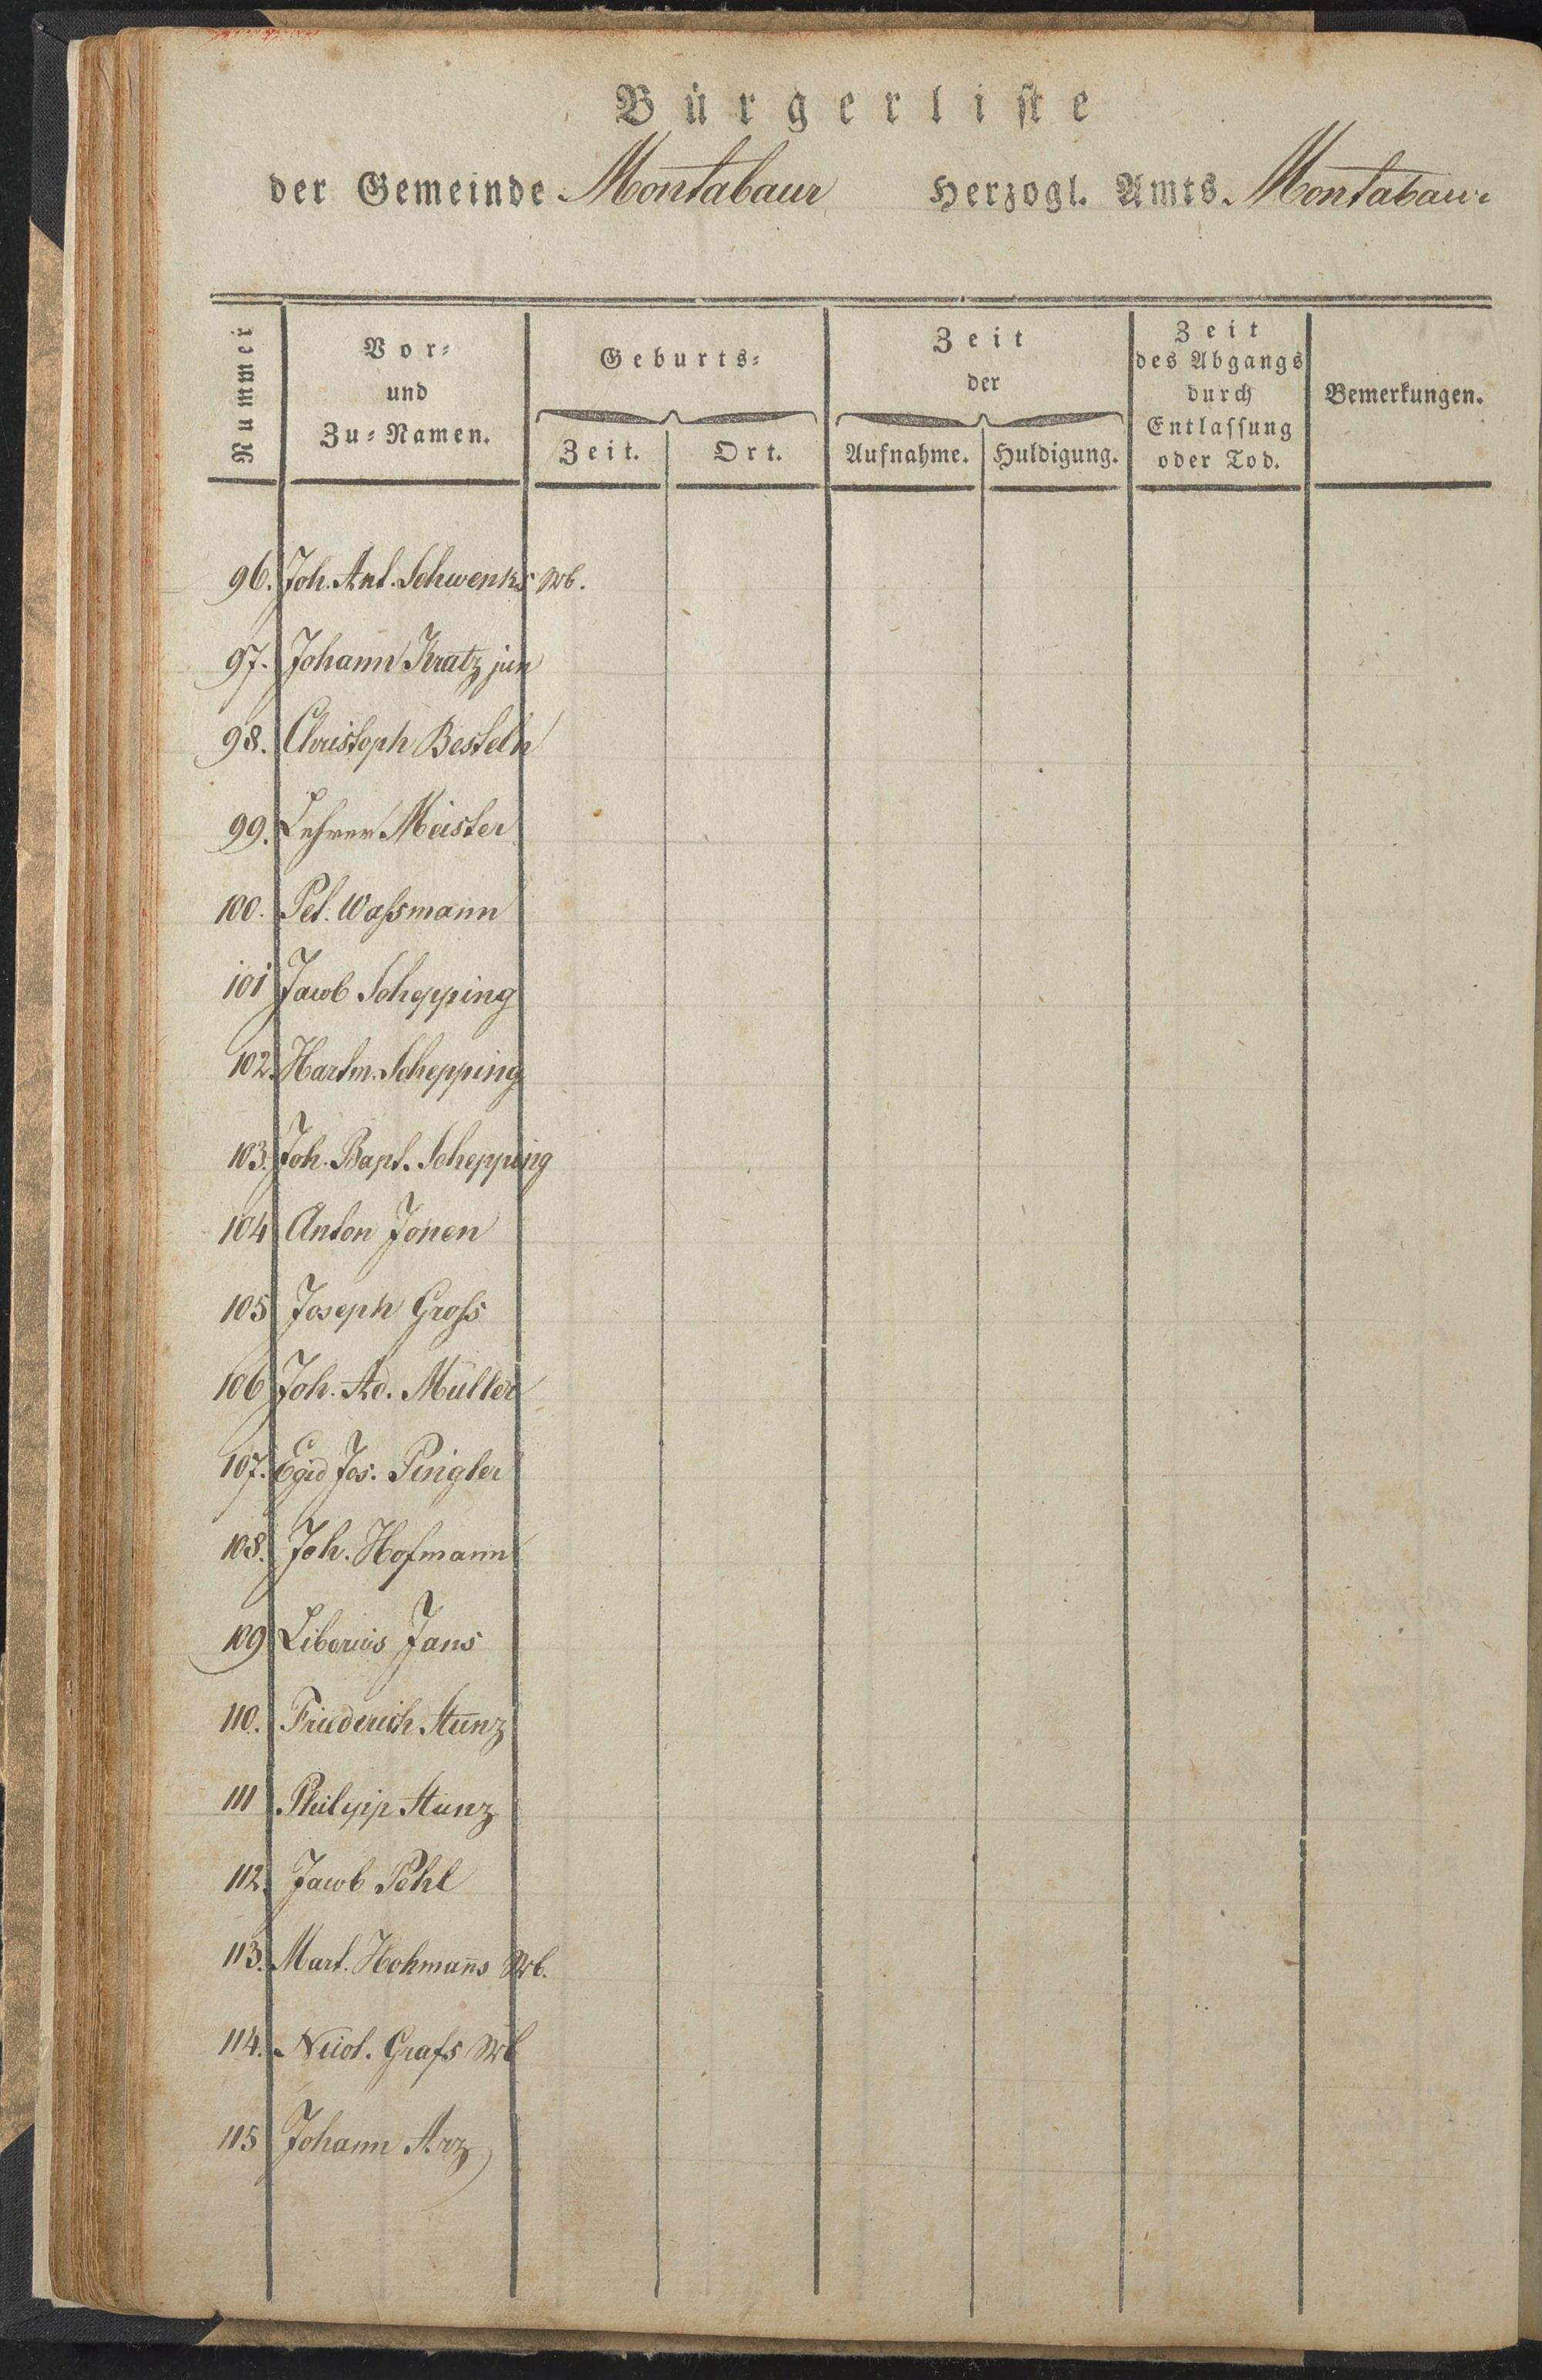 Bürgerliste
der Gemeinde Montabaur Herzogl. Amts Montabaur
Nummer
Vor-
und
Zu-Namen.
Geburts-
Zeit. Ort.
Zeit
der
Aufnahme. Huldigung.
Zeit
des Abgangs
durch
Entlassung
oder Tod.
Bemerkungen.
96. Joh. Ant. Schwenks Wb.
97. Johann Kratz jun
98. Christoph Besteln
99. Lehrer Meister
100. Pet. Waßmann
101 Jacob Schepping
102. Hartm. Schepping
103. Joh. Bapt. Schepping
104 Anton Jonen
105 Joseph Groß
106 Joh. Ad. Müller
107. Egid Jos. Pingler
108. Joh. Hofmann
109 Liborius Jans
110. Friederich Stunz
111 Philipp Stunz
112. Jacob Pehl
113. Mart. Hohmans Wb.
114. Nicol. Grafs Wb
115 Johann Arz